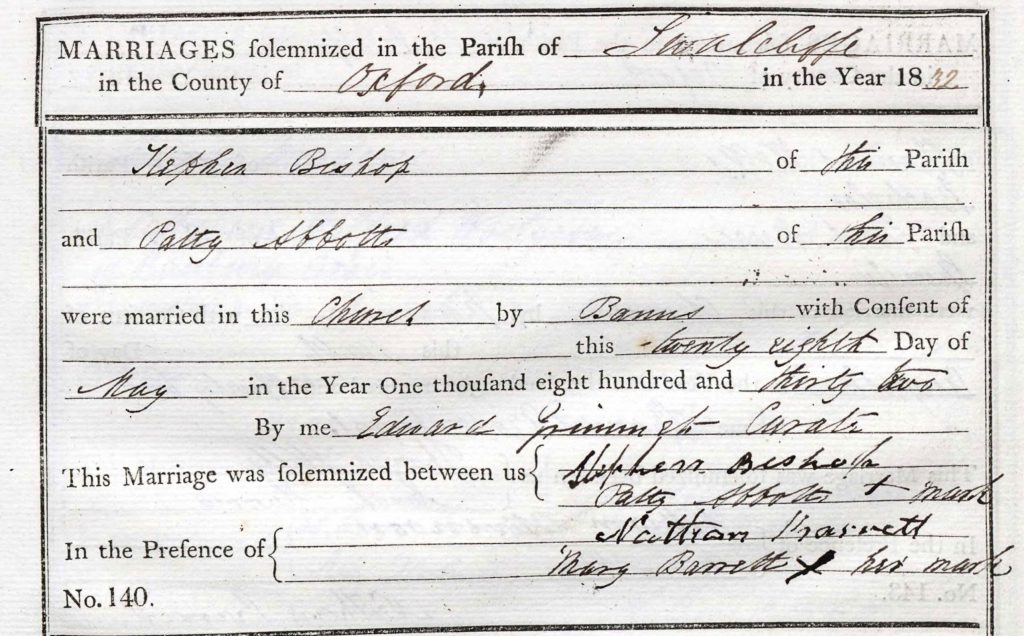 MARRIAGES ſolemnized in the Pariſh of Swalcliffe
in the County of Oxford. in the Year 1832
Stephen Bishop of this Pariſh
and Patty Abbotts of this Pariſh
were married in this Church by Banns with Conſent of
this twenty eighth Day of
May in the Year One thouſand eight hundred and thirty two
By me Edward Curate
This Marriage was ſolemnized between us { Stephen Bishop
Patty Abbotts + mark
In the Preſence of { Nathan Barrett
Mary Barrett X her mark
No. 140.